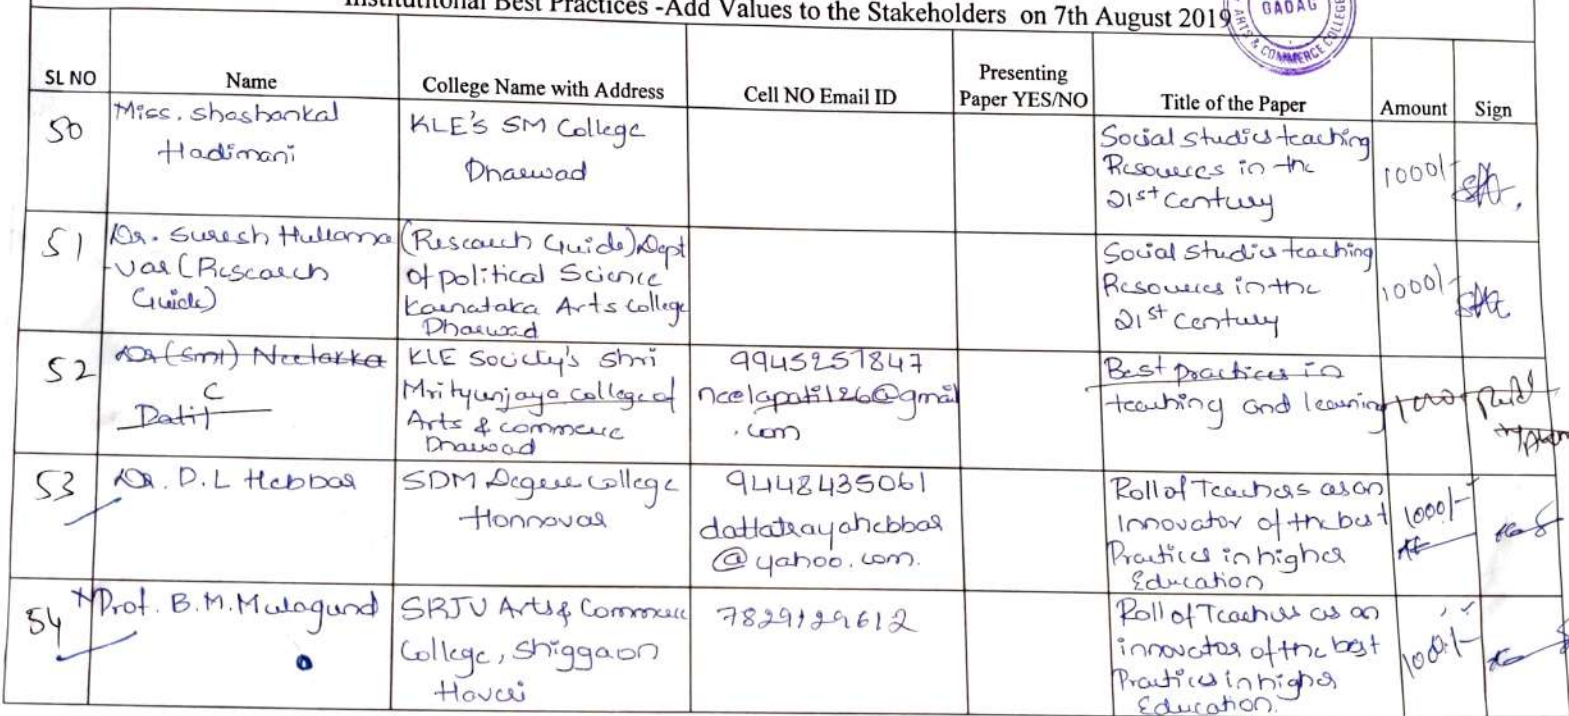 Institutitonal Best Practices -Add Values to the Stakeholders on 7th August 2019
GADAG
ARTS & COMMERCE COLLEGE
SL NO
Name
College Name with Address
Cell NO Email ID
Presenting
Paper YES/NO
Title of the Paper
Amount
Sign
50
Miss. Shashankal
Hadimani
KLE's SM College
Dharwad
Social studies teaching
Resources in the
21st Century
1000/-
51
Dr. Suresh Hullanna
var (Research
Guide)
(Research Guide) Dept
of political Science
Karnataka Arts College
Dharwad
Social Studies teaching
Resources in the
21st Century
1000/-
52
Dr (Smt) Neelakka
C
Patil
KLE Society's Shri
Mrityunjaya college of
Arts & commerce
Dharwad
9945257847
neelapatil26@gmail
.com
Best practices in
teaching and learning
1000
53
Dr. D.L Hebbar
SDM Degree college
Honnovar
9448435061
dattatrayahebbar
@yahoo.com.
Roll of Teachers as an
Innovator of the best
Practices in higher
Education
1000/-
54
Prof. B.M. Mulagund
SRJV Arts & Commerce
College, Shiggaon
Haveri
7829129612
Roll of Teachers as an
innovator of the best
Practices in higher
Education.
1000/-